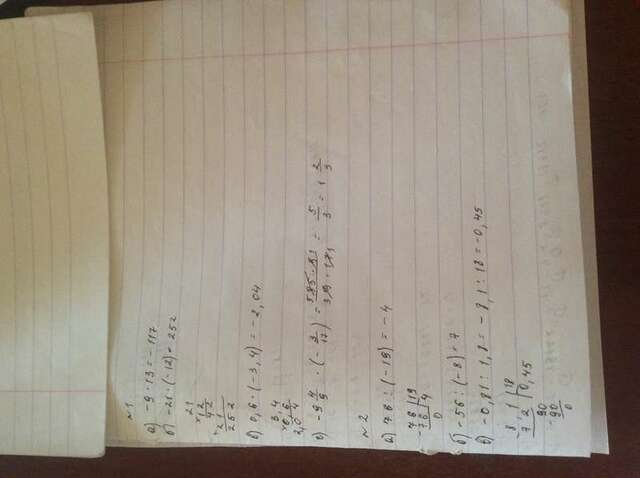 №1
а) -9 · 13 = -117
б) -21 · (-12) = 252
21
× 12
42
+ 21
252
в) 0,6 · (-3,4) = -2,04
3,4
× 0,6
2,0 4
г) -9 4/9 · (- 3/17) = 5 85 · 3 1 / 3 9 · 17 1 = 5/3 = 1 2/3
№2
а) 76 : (-19) = -4
- 76 | 19
76 | 4
0
б) -56 : (-8) = 7
в) -0,81 : 1,8 = -8,1 : 18 = -0,45
- 8,1 | 18
7 2 | 0,45
90
- 90
0